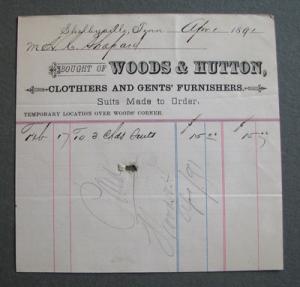 Shelbyville, Tenn Apr 1 1892
M
BOUGHT OF WOODS & HUTTON,
CLOTHIERS AND GENTS' FURNISHERS.
Suits Made to Order.
TEMPORARY LOCATION OVER WOODS' CORNER.
Feb 17 To 3 Pants $15.00 $15.00